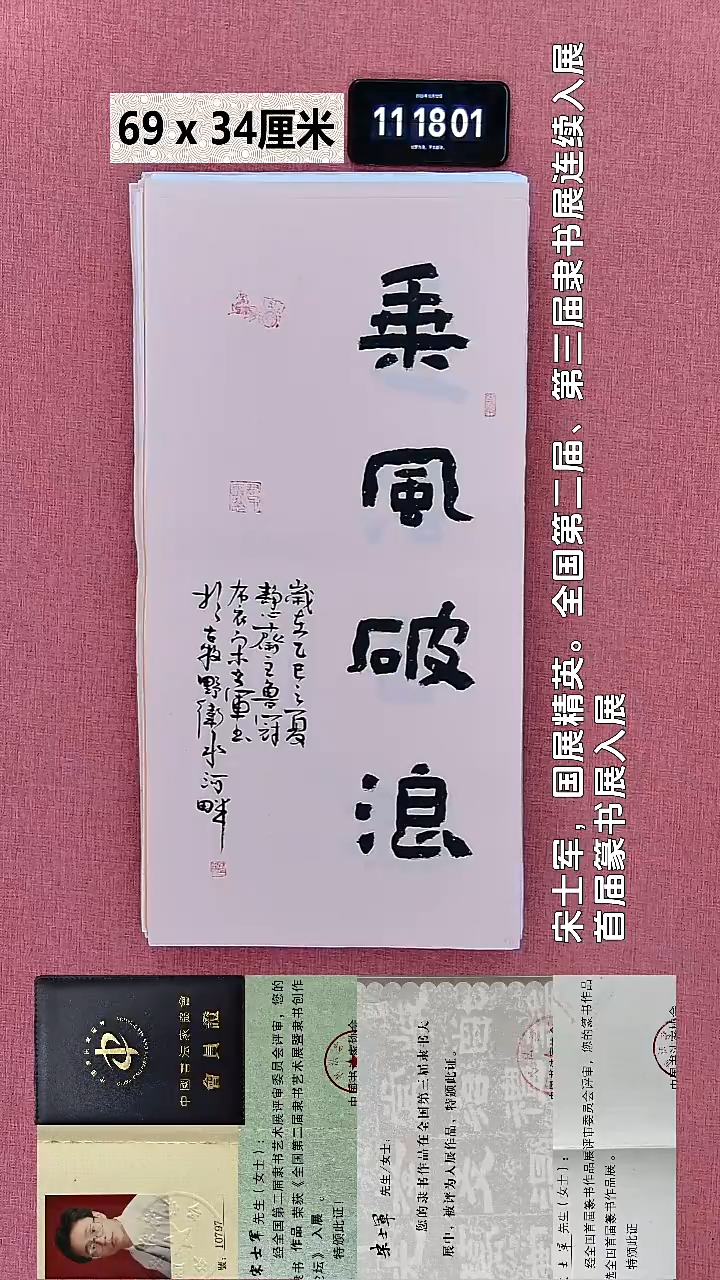 69 x 34厘米
11 18 01
乘風破浪
歲在乙巳之夏
靜心齋主魯冠
布衣宋士軍書
於古黎野衛水河畔
宋士军，国展精英。全国第二届、第三届隶书展连续入展
首届篆书展入展
中國書法家協會
會員證
號：10797
宋士军 先生（女士）：
经全国第二届隶书艺术展评审委员会评审，您的
隶书 作品 荣获《全国第二届隶书艺术展暨隶书创作
论坛》 入展 。
特颁此证！
宋士軍 先生/女士：
您的隶书作品在全国第三届隶书大
展中，被评为入展作品，特颁此证。
士军 先生（女士）：
经全国首届篆书作品展评审委员会评审，您的篆书作品
选全国首届篆书作品展。
特颁此证